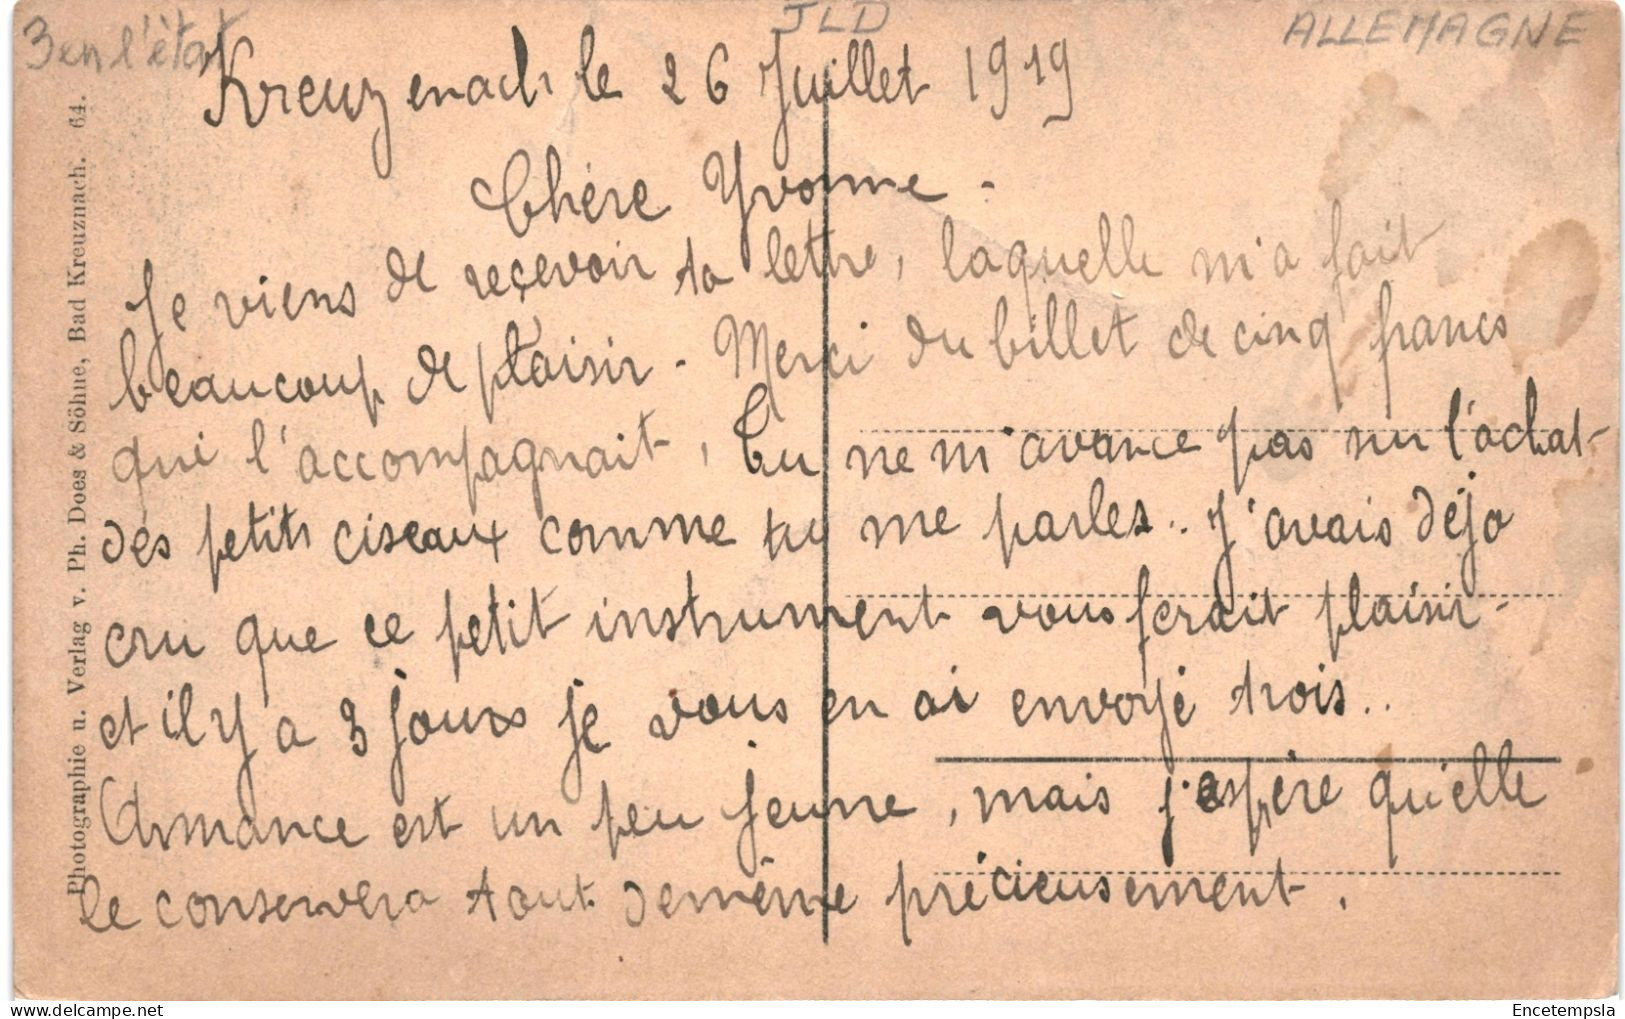 3 en l'état
JLD
ALLEMAGNE
Kreuzenach le 26 Juillet 1919
Chère Yvonne -
Je viens de reçevoir ta lettre, laquelle m'a fait
beaucoup de plaisir - Merci du billet de cinq francs
qui l'accompagnait, Tu ne m'avance pas sur l'achat
des petits ciseaux comme tu me parles.. J'avais déjà
cru que ce petit instrument vous ferait plaisir -
et il y a 3 jours je vous en ai envoyé trois..
Armance est un peu jeune, mais j'espère qu'elle
le conservera tout de même précieusement.
Photographie u. Verlag v. Ph. Does & Söhne, Bad Kreuznach. 64.
Encetempsla